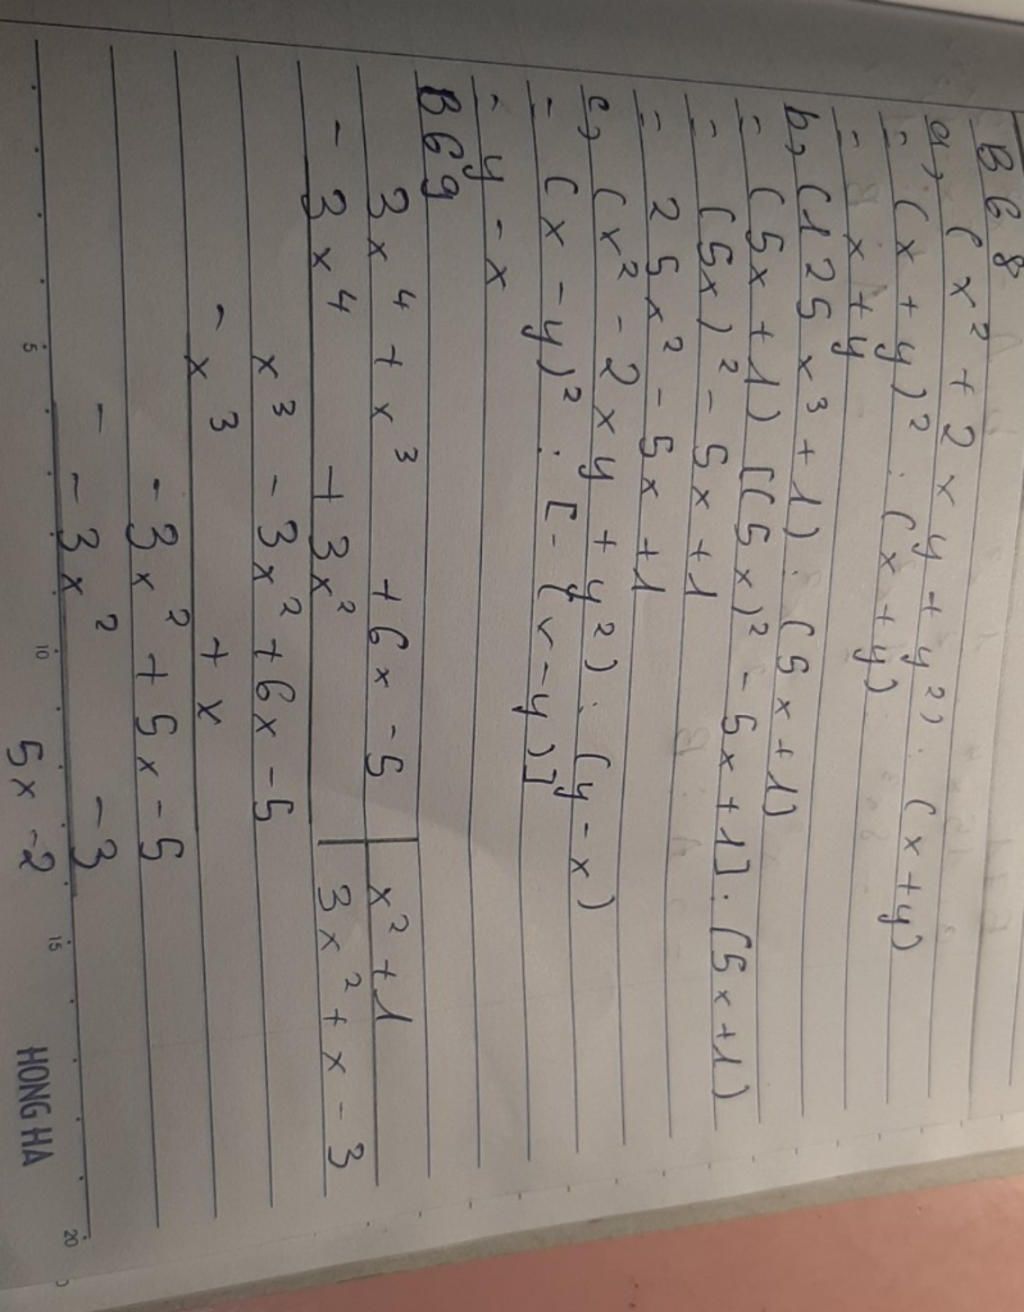 B68
a, (x² + 2xy + y²) : (x+y)
= (x + y)² : (x + y)
= x + y
b, (125x³ + 1) : (5x + 1)
= (5x + 1) [(5x)² - 5x + 1] : (5x + 1)
= (5x)² - 5x + 1
= 25x² - 5x + 1
c, (x² - 2xy + y²) : (y - x)
= (x - y)² : [- (x - y)]
= y - x
B69
3x⁴ + x³ + 6x - 5 | x² + 1
- 3x⁴ + 3x² | 3x² + x - 3
x³ - 3x² + 6x - 5
- x³ + x
- 3x² + 5x - 5
- - 3x² - 3
5x - 2
5 10 15 20
HONG HA